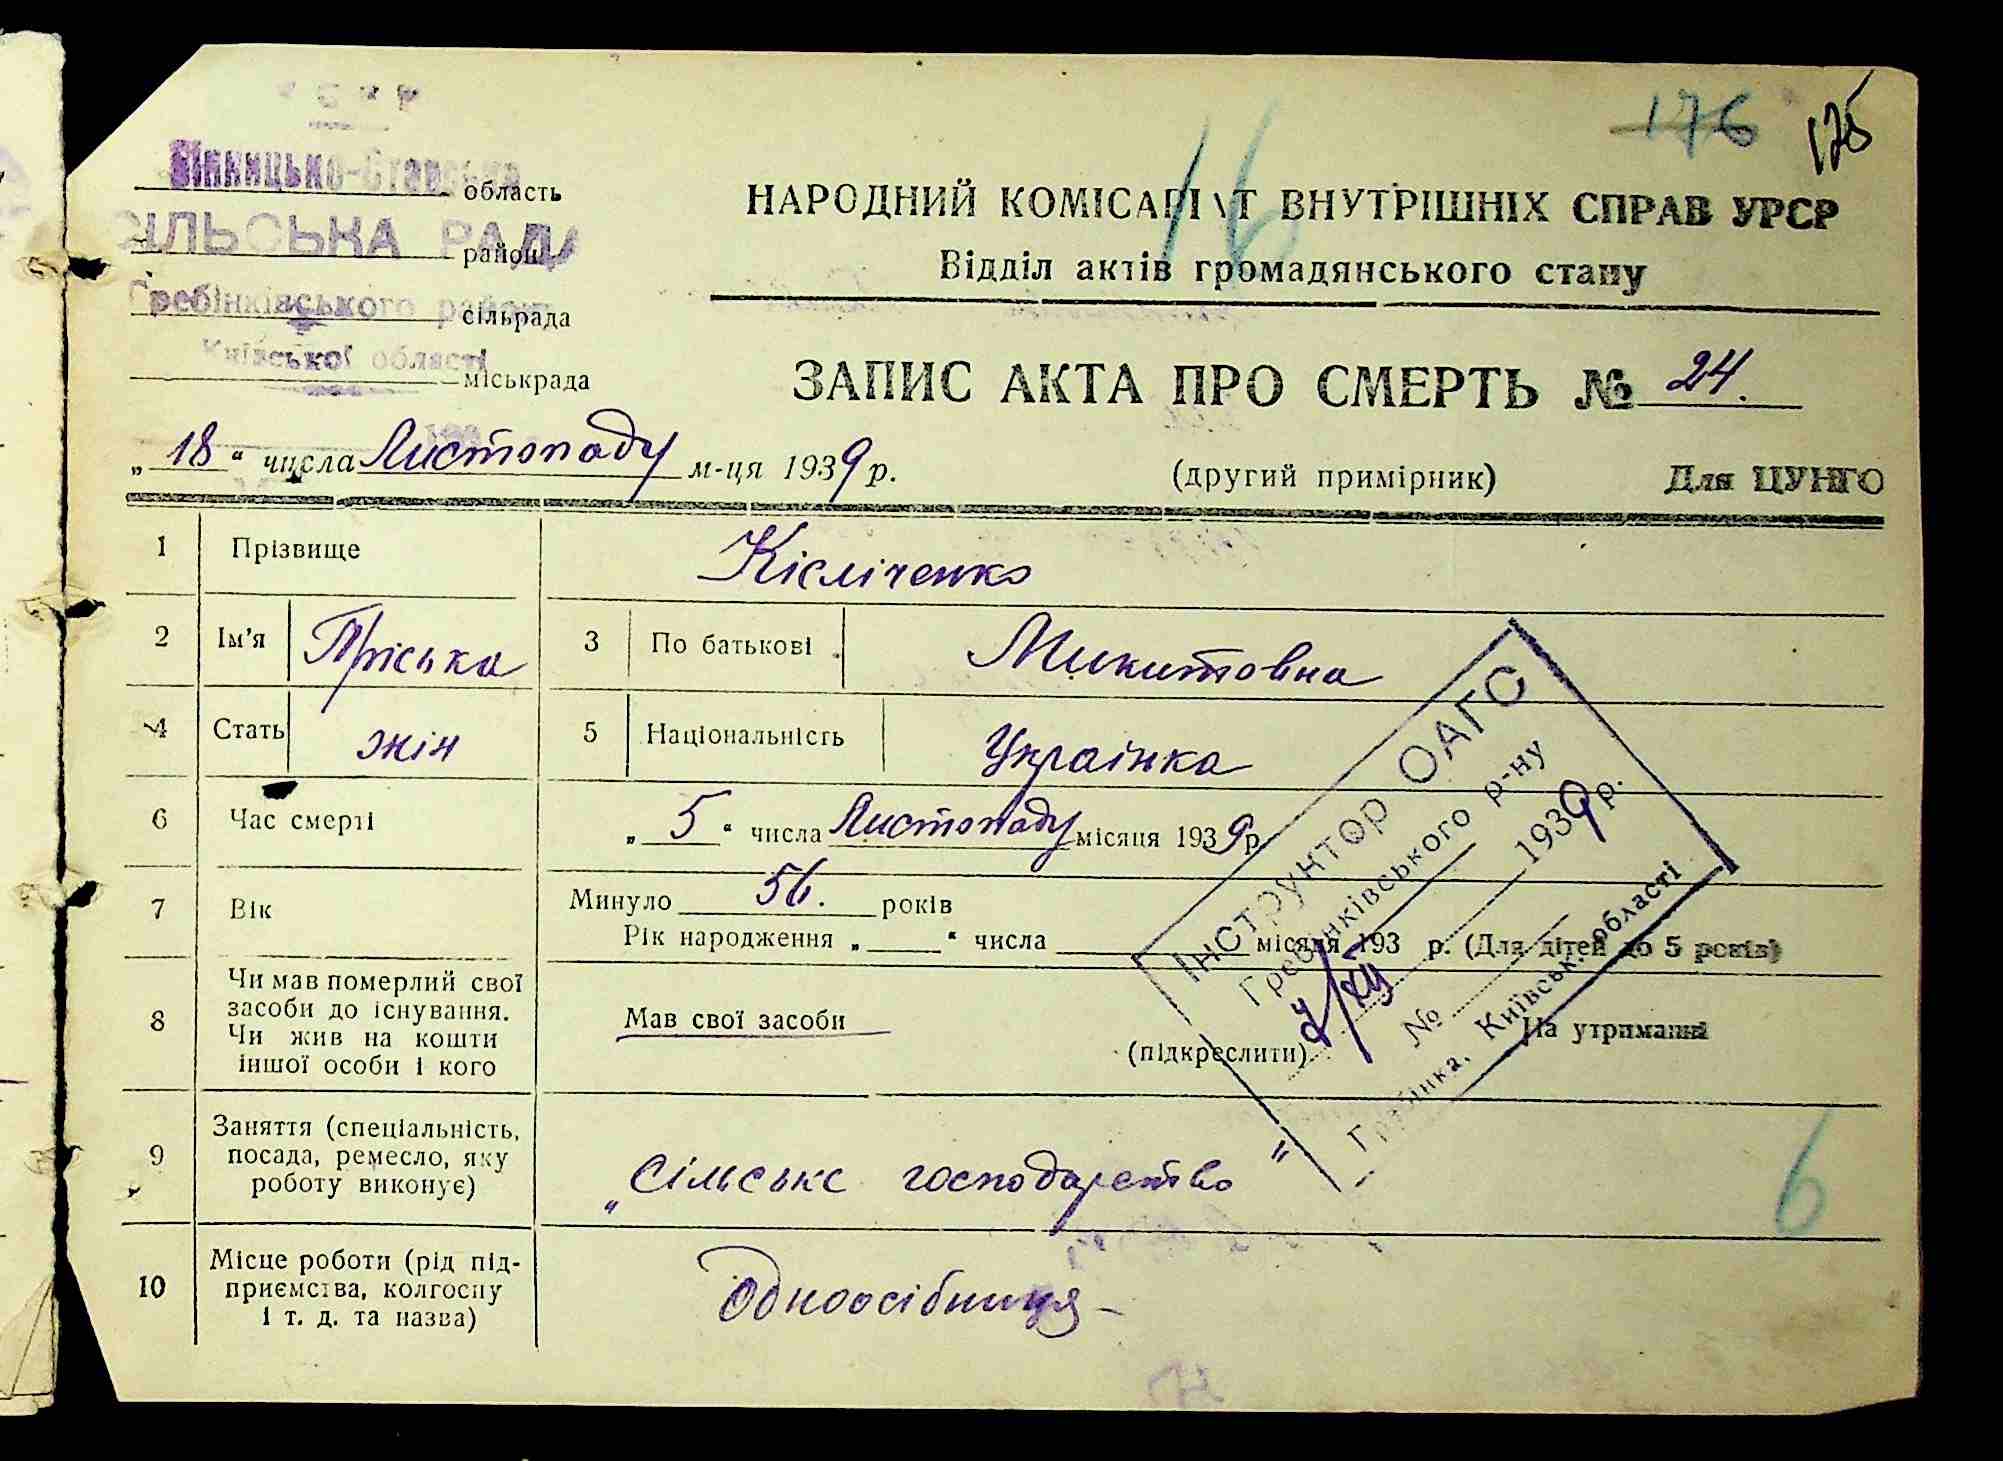 176 125
Вінницько-Ставська
область
СІЛЬСЬКА РАДА
район
Гребінківського району
сільрада
Київської області
міськрада
16
НАРОДНИЙ КОМІСАРІАТ ВНУТРІШНІХ СПРАВ УРСР
Відділ актів громадянського стану
ЗАПИС АКТА ПРО СМЕРТЬ № 24.
„18“ числа Листопаду м-ця 1939 р.
(другий примірник) Для ЦУНГО
1 Прізвище Кісліченко
2 Ім'я Пріська 3 По батькові Микитовна
4 Стать жін 5 Національність Українка
6 Час смерті „5“ числа Листопаду місяця 1939 р.
7 Вік Минуло 56. років
Рік народження „ “ числа місяця 193 р. (Для дітей до 5 років)
8 Чи мав померлий свої
засоби до існування.
Чи жив на кошти
іншої особи і кого
Мав свої засоби (підкреслити) На утриманні
9 Заняття (спеціальність,
посада, ремесло, яку
роботу виконує)
„Сільське господарство"
10 Місце роботи (рід під-
приємства, колгоспу
і т. д. та назва)
Одноосібниця
ІНСТРУКТОР ОАГС
Гребінківського р-ну
1939 р.
№
Гребінка, Київськ. області
6